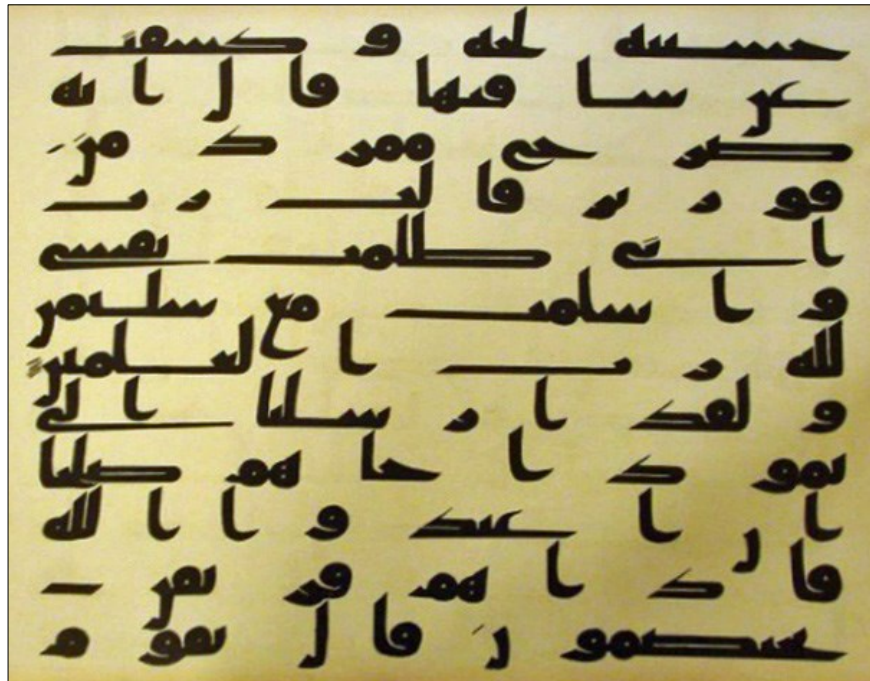 حسبته لجة و كشفت
عن ساقيها قال انه
صرح ممرد من
قورير قالت رب
اني ظلمت نفسي
و اسلمت مع سليمن
لله رب العلمين
و لقد ارسلنا الى
ثمود اخاهم صلحا
ان اعبدوا الله
فاذا هم فريقن
يختصمون قال يقوم